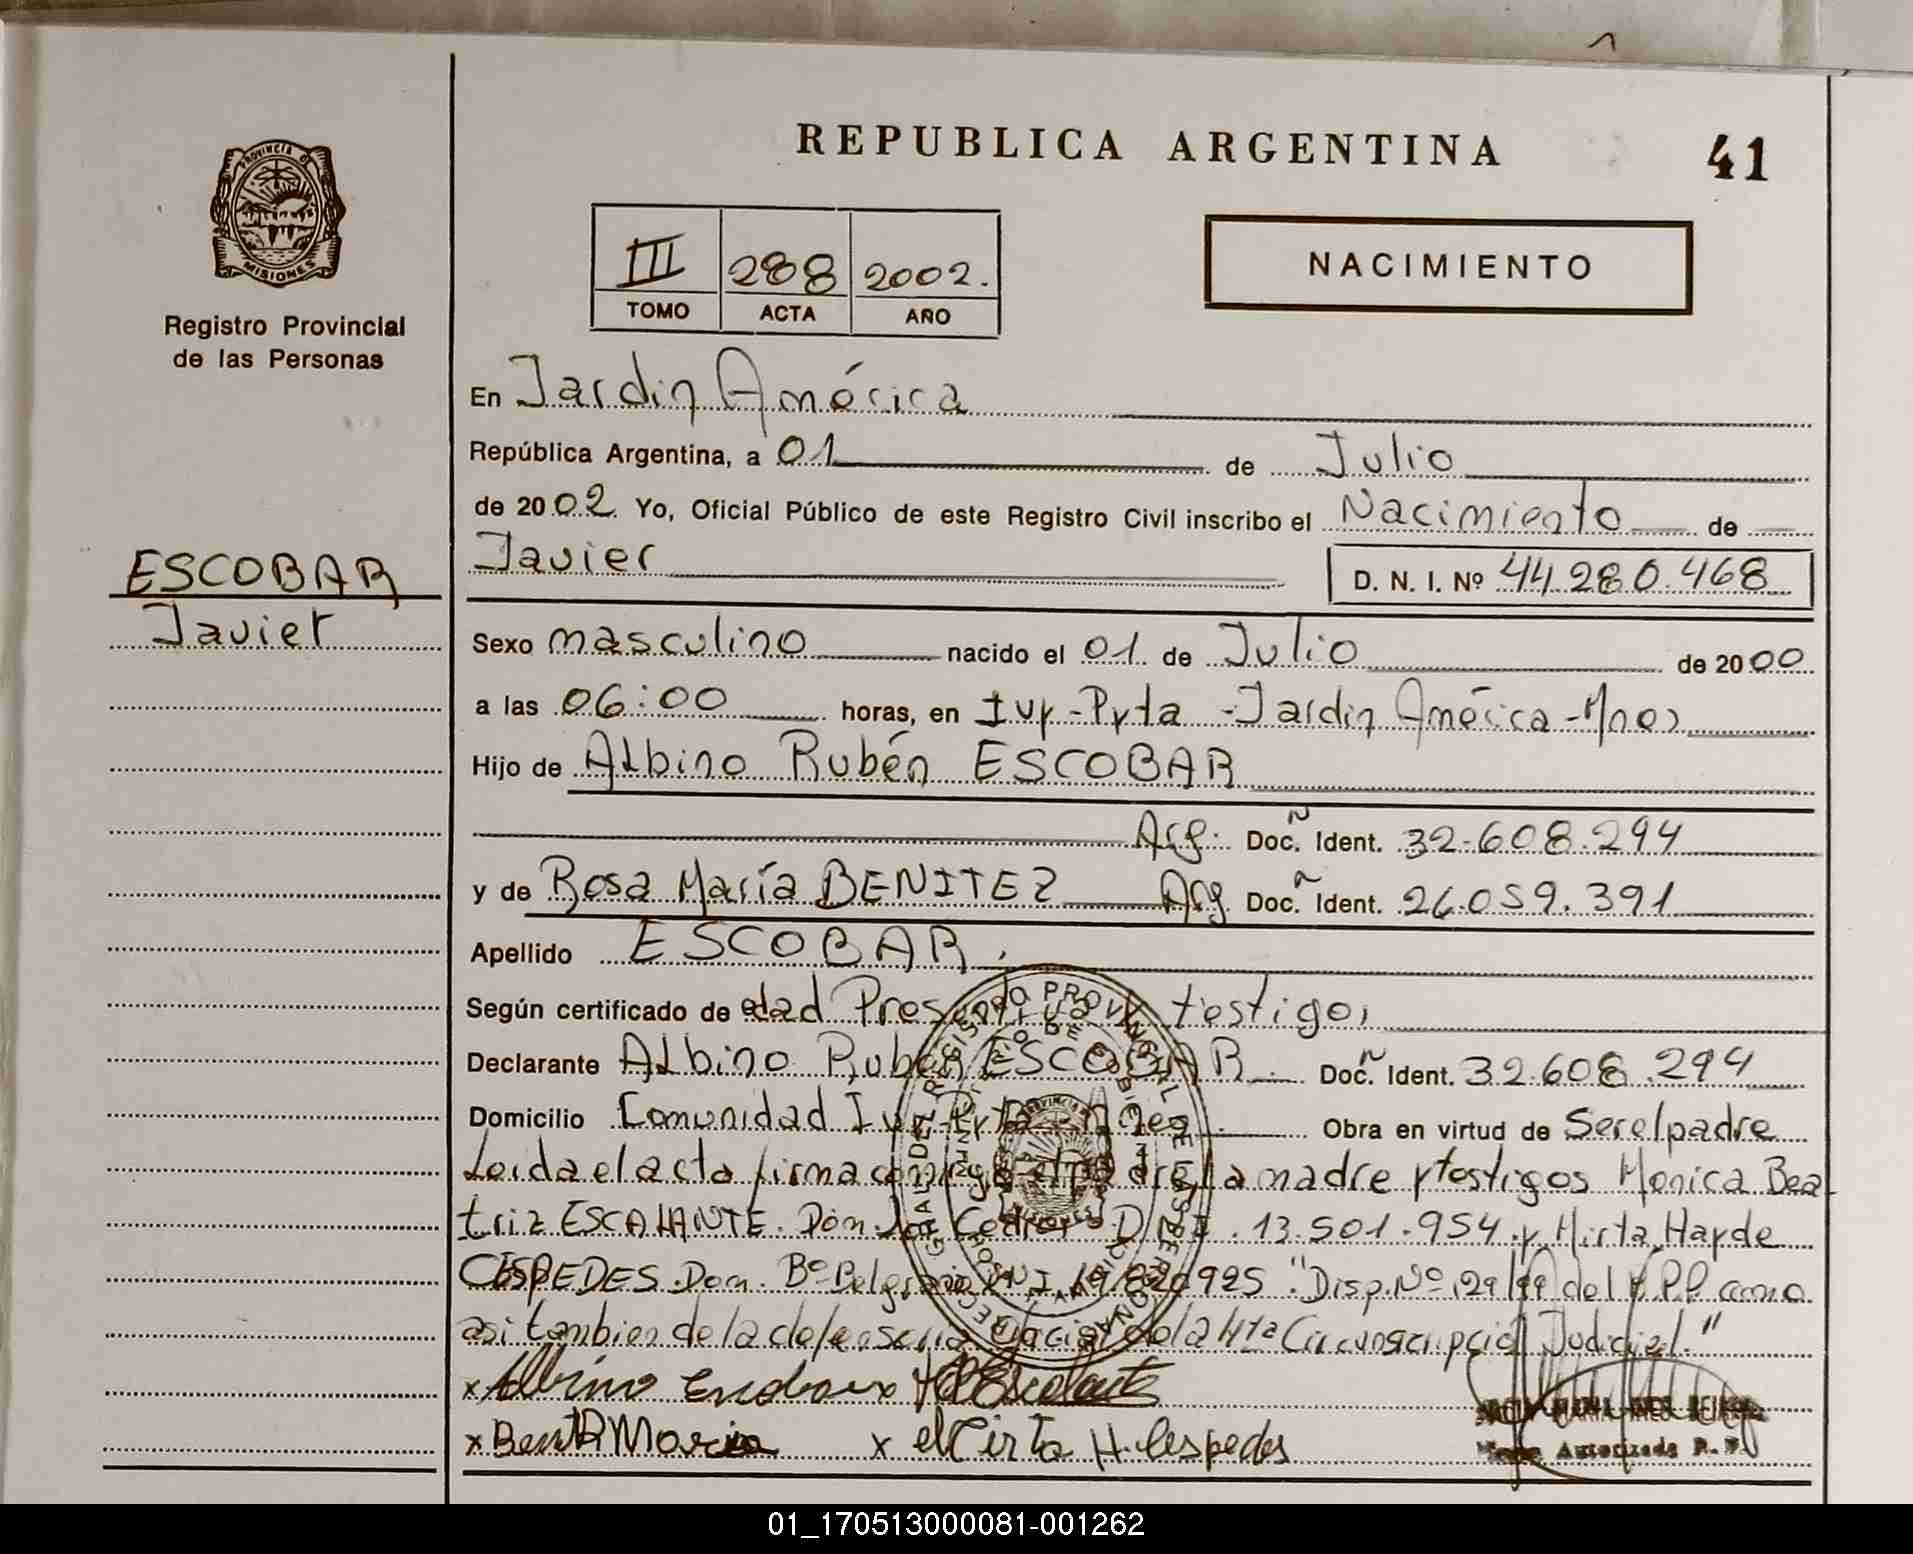 REPUBLICA ARGENTINA
41
PROVINCIA D
MISIONES
Registro Provincial
de las Personas
III 288 2002.
TOMO ACTA AÑO
NACIMIENTO
En Jardin América
República Argentina, a 01 de Julio
de 2002 Yo, Oficial Público de este Registro Civil inscribo el Nacimiento de
Javier D. N. I. Nº 44.280.468
ESCOBAR
Javier
Sexo masculino nacido el 01 de Julio de 2000
a las 06:00 horas, en Ivy-Pyta - Jardin América - Mnes
Hijo de Albino Rubén ESCOBAR
Arg. Doc. Ident. 32.608.294
y de Rosa María BENITEZ Arg. Doc. Ident. 26.059.391
Apellido ESCOBAR.
Según certificado de edad Presuntiva y testigos
Declarante Albino Rubén ESCOBAR. Doc. Ident. 32.608.294
Domicilio Comunidad Ivy-Pyta - Mnes. Obra en virtud de Ser el padre
Leida el acta firma conmigo el padre, la madre y testigos Monica Bea
triz ESCALANTE. Dom. Los Cedros D.N.I. 13.501.954 y Mirta Hayde
CESPEDES. Dom. Bº Belgrano D.N.I. "Disp. Nº 129/99 del R.P.P. como
asi tambien de la defensoria Oficial de la 4ta Circunscripción Judicial."
x Albino Escobar x Escalante
x Benit R Maria x H. Cespedes
Autorizada R. P.
01_170513000081-001262